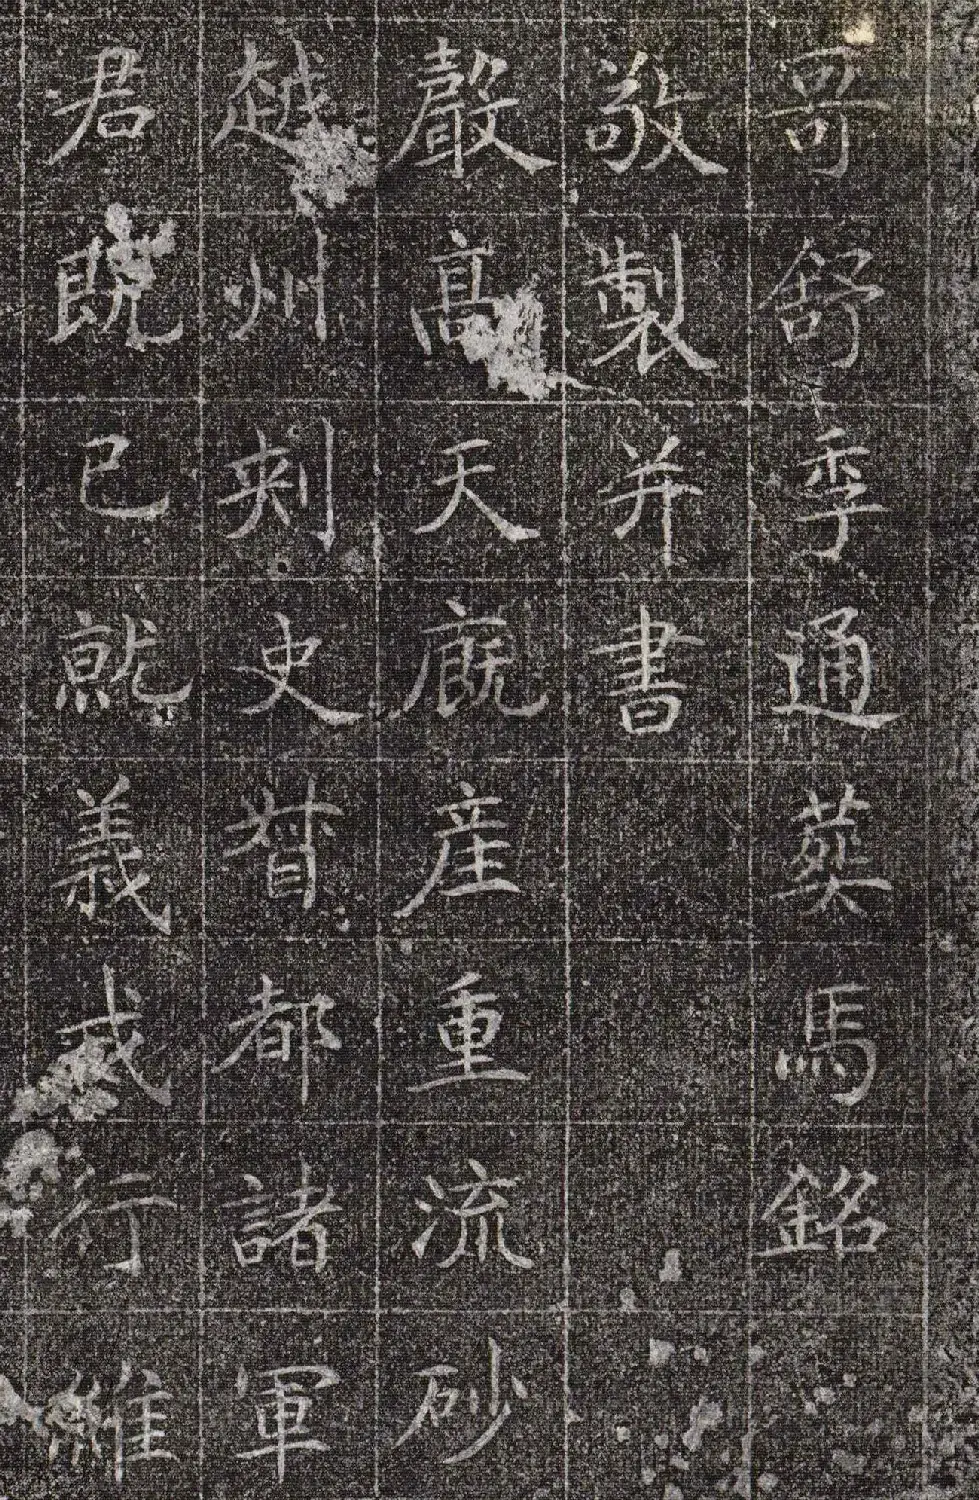 哥舒季通葬馬銘
敬製并書
嚴高天廐産重流砂
越州刺史督都諸軍
君既已就義戎行雖